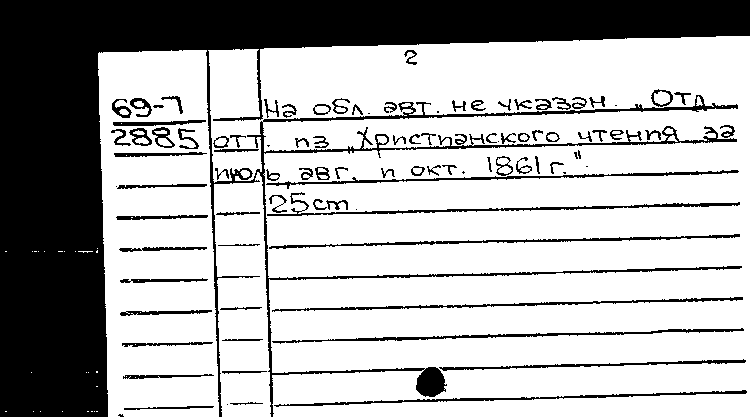 2
69-7 На обл. авт. не указан. „Отд.
2885 отт. из „Христианского чтения за
июль, авг. и окт. 1861 г.".
25 cm